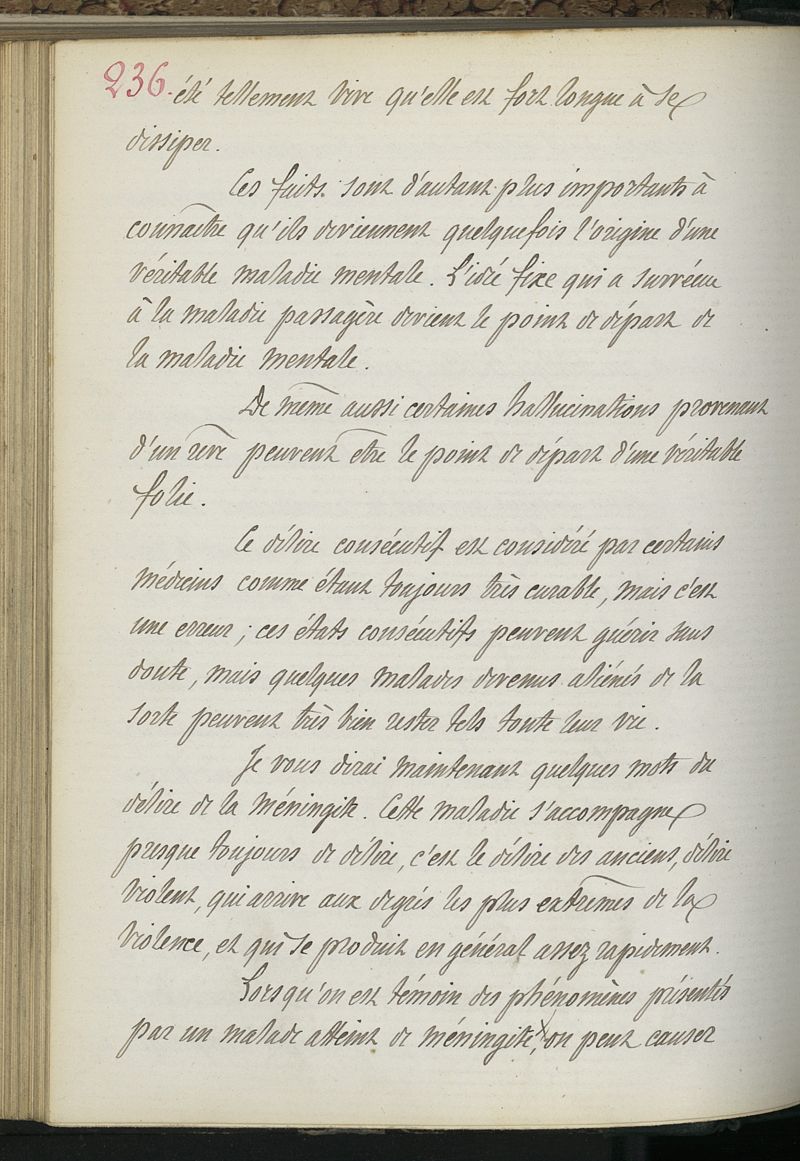 236. été tellement vive qu'elle est fort longue à se
dissiper.
Ces faits sont d'autant plus importants à
connaître qu'ils deviennent quelquefois l'origine d'une
véritable maladie mentale. L'idée fixe qui a survécu
à la maladie passagère devient le point de départ de
la maladie mentale.
De même aussi certaines hallucinations provenant
d'un rêve peuvent être le point de départ d'une véritable
folie.
Ce délire consécutif est considéré par certains
médecins comme étant toujours très curable, mais c'est
une erreur ; ces états consécutifs peuvent guérir sans
doute, mais quelques malades devenus aliénés de la
sorte peuvent très bien rester tels toute leur vie.
Je vous dirai maintenant quelques mots du
délire de la méningite. Cette maladie s'accompagne
presque toujours de délire, c'est le délire des anciens, délire
violent, qui arrive aux degrés les plus extrêmes de la
violence, et qui se produit en général assez rapidement.
Lorsqu'on est témoin des phénomènes présentés
par un malade atteint de méningite, on peut causer